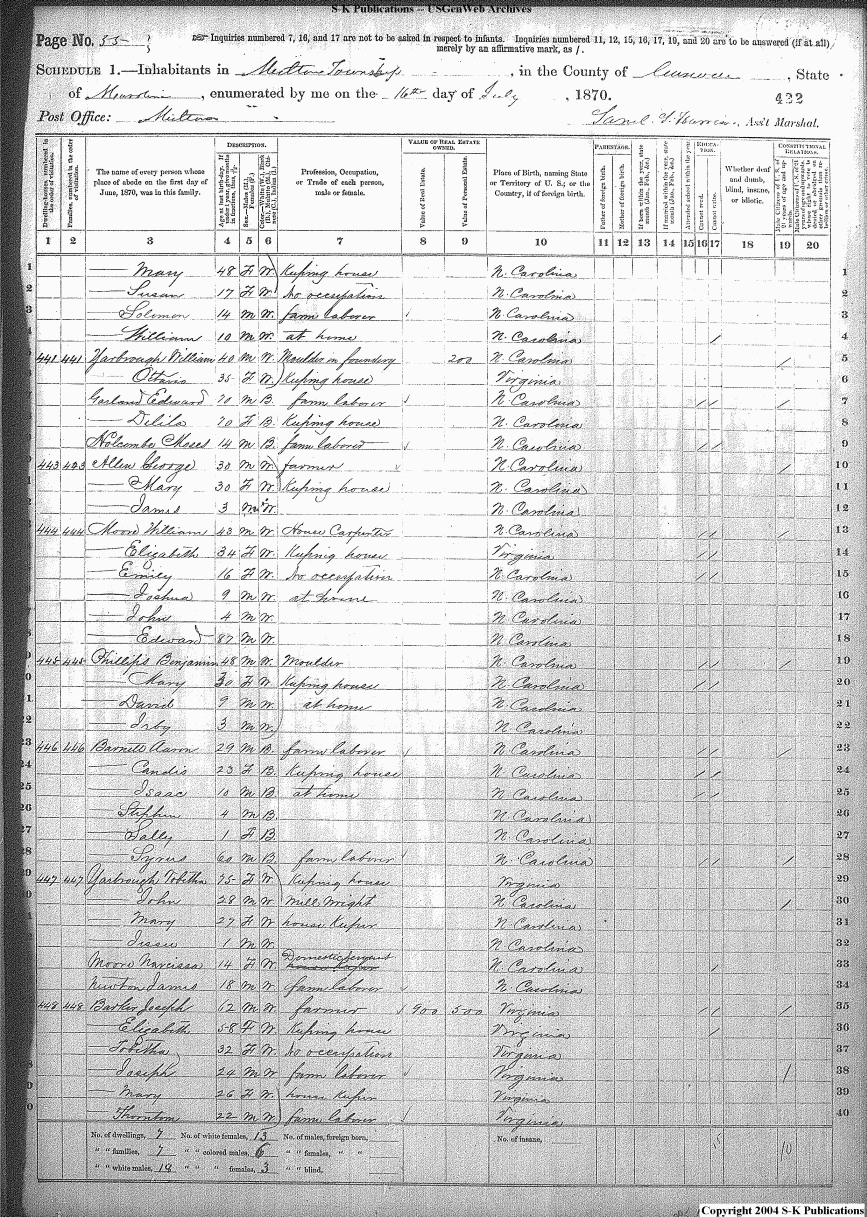 S-K Publications -- USGenWeb Archives
Page No. 55
Inquiries numbered 7, 16, and 17 are not to be asked in respect to infants. Inquiries numbered 11, 12, 15, 16, 17, 19, and 20 are to be answered (if at all) merely by an affirmative mark, as /.
SCHEDULE 1.—Inhabitants in Milton Township, in the County of, State
of, enumerated by me on the 16th day of July, 1870. 422
Post Office: Milton Ass't Marshal.
DESCRIPTION. VALUE OF REAL ESTATE OWNED. PARENTAGE. EDUCATION. CONSTITUTIONAL RELATIONS.
Dwelling-houses, numbered in the order of visitation.
Families, numbered in the order of visitation.
The name of every person whose place of abode on the first day of June, 1870, was in this family.
Profession, Occupation, or Trade of each person, male or female.
Value of Real Estate.
Value of Personal Estate.
Place of Birth, naming State or Territory of U. S.; or the Country, if of foreign birth.
Father of foreign birth.
Mother of foreign birth.
Attended school within the year.
Cannot read.
Cannot write.
Whether deaf and dumb, blind, insane, or idiotic.
1 2 3 4 5 6 7 8 9 10 11 12 13 14 15 16 17 18 19 20
1 — Mary 48 F W Keeping house N. Carolina 1
2 — Susan 17 F W No occupation N. Carolina 2
3 — Solomon 14 M W farm laborer N. Carolina 3
4 — William 10 M W at home N. Carolina / 4
5 441 441 Yarbrough William 40 M W Moulder in foundery 200 N. Carolina / 5
35 F W Keeping house Virginia 6
Garland Edward 70 M B farm laborer N. Carolina / / / 7
— Delila 70 F B Keeping house N. Carolina 8
Holcombe Moses 14 M B farm laborer N. Carolina / / 9
443 443 Allen George 30 M W farmer N. Carolina / 10
— Mary 30 F W Keeping house N. Carolina 11
— James 3 M W N. Carolina 12
444 444 Moore William 43 M W House Carpenter N. Carolina / / / 13
— Elizabeth 34 F W Keeping house Virginia / / 14
— Emily 16 F W No occupation N. Carolina / / 15
— Joshua 9 M W at home N. Carolina 16
— John 4 M W N. Carolina 17
— Edward 87 M W N. Carolina 18
445 445 Phillips Benjamin 48 M W Moulder N. Carolina / / / 19
— Mary 30 F W Keeping house N. Carolina / / 20
— David 9 M W at home N. Carolina 21
— Irby 3 M W N. Carolina 22
23 446 446 Barnett Aaron 29 M B farm laborer N. Carolina / / / 23
24 — Candis 23 F B Keeping house N. Carolina / / 24
25 — Isaac 10 M B at home N. Carolina / / 25
26 — Stephen 4 M B N. Carolina 26
27 — Sally 1 F B N. Carolina 27
28 — Syrus 60 M B farm laborer N. Carolina / / / 28
447 447 Yarbrough Tobitha 75 F W Keeping house Virginia 29
— John 28 M W Mill Wright N. Carolina / 30
— Mary 27 F W house Keeper N. Carolina 31
— Jessie 1 M W N. Carolina 32
Moore Narcissa 14 F W Domestic servant N. Carolina / 33
Newton James 18 M W farm laborer N. Carolina 34
448 448 Barker Joseph 62 M W farmer 900 500 Virginia / / / 35
— Elizabeth 58 F W Keeping house Virginia / 36
— Tobitha 32 F W No occupation Virginia 37
— Joseph 24 M W farm laborer Virginia / 38
— Mary 26 F W house Keeper Virginia 39
— Thornton 22 M W farm laborer Virginia 40
No. of dwellings, 7 No. of white females, 13 No. of males, foreign born, No. of insane, 15 10
" " families, 7 " " colored males, 6 " " females, " "
" " white males, 18 " " females, 3 " " blind,
Copyright 2004 S-K Publications